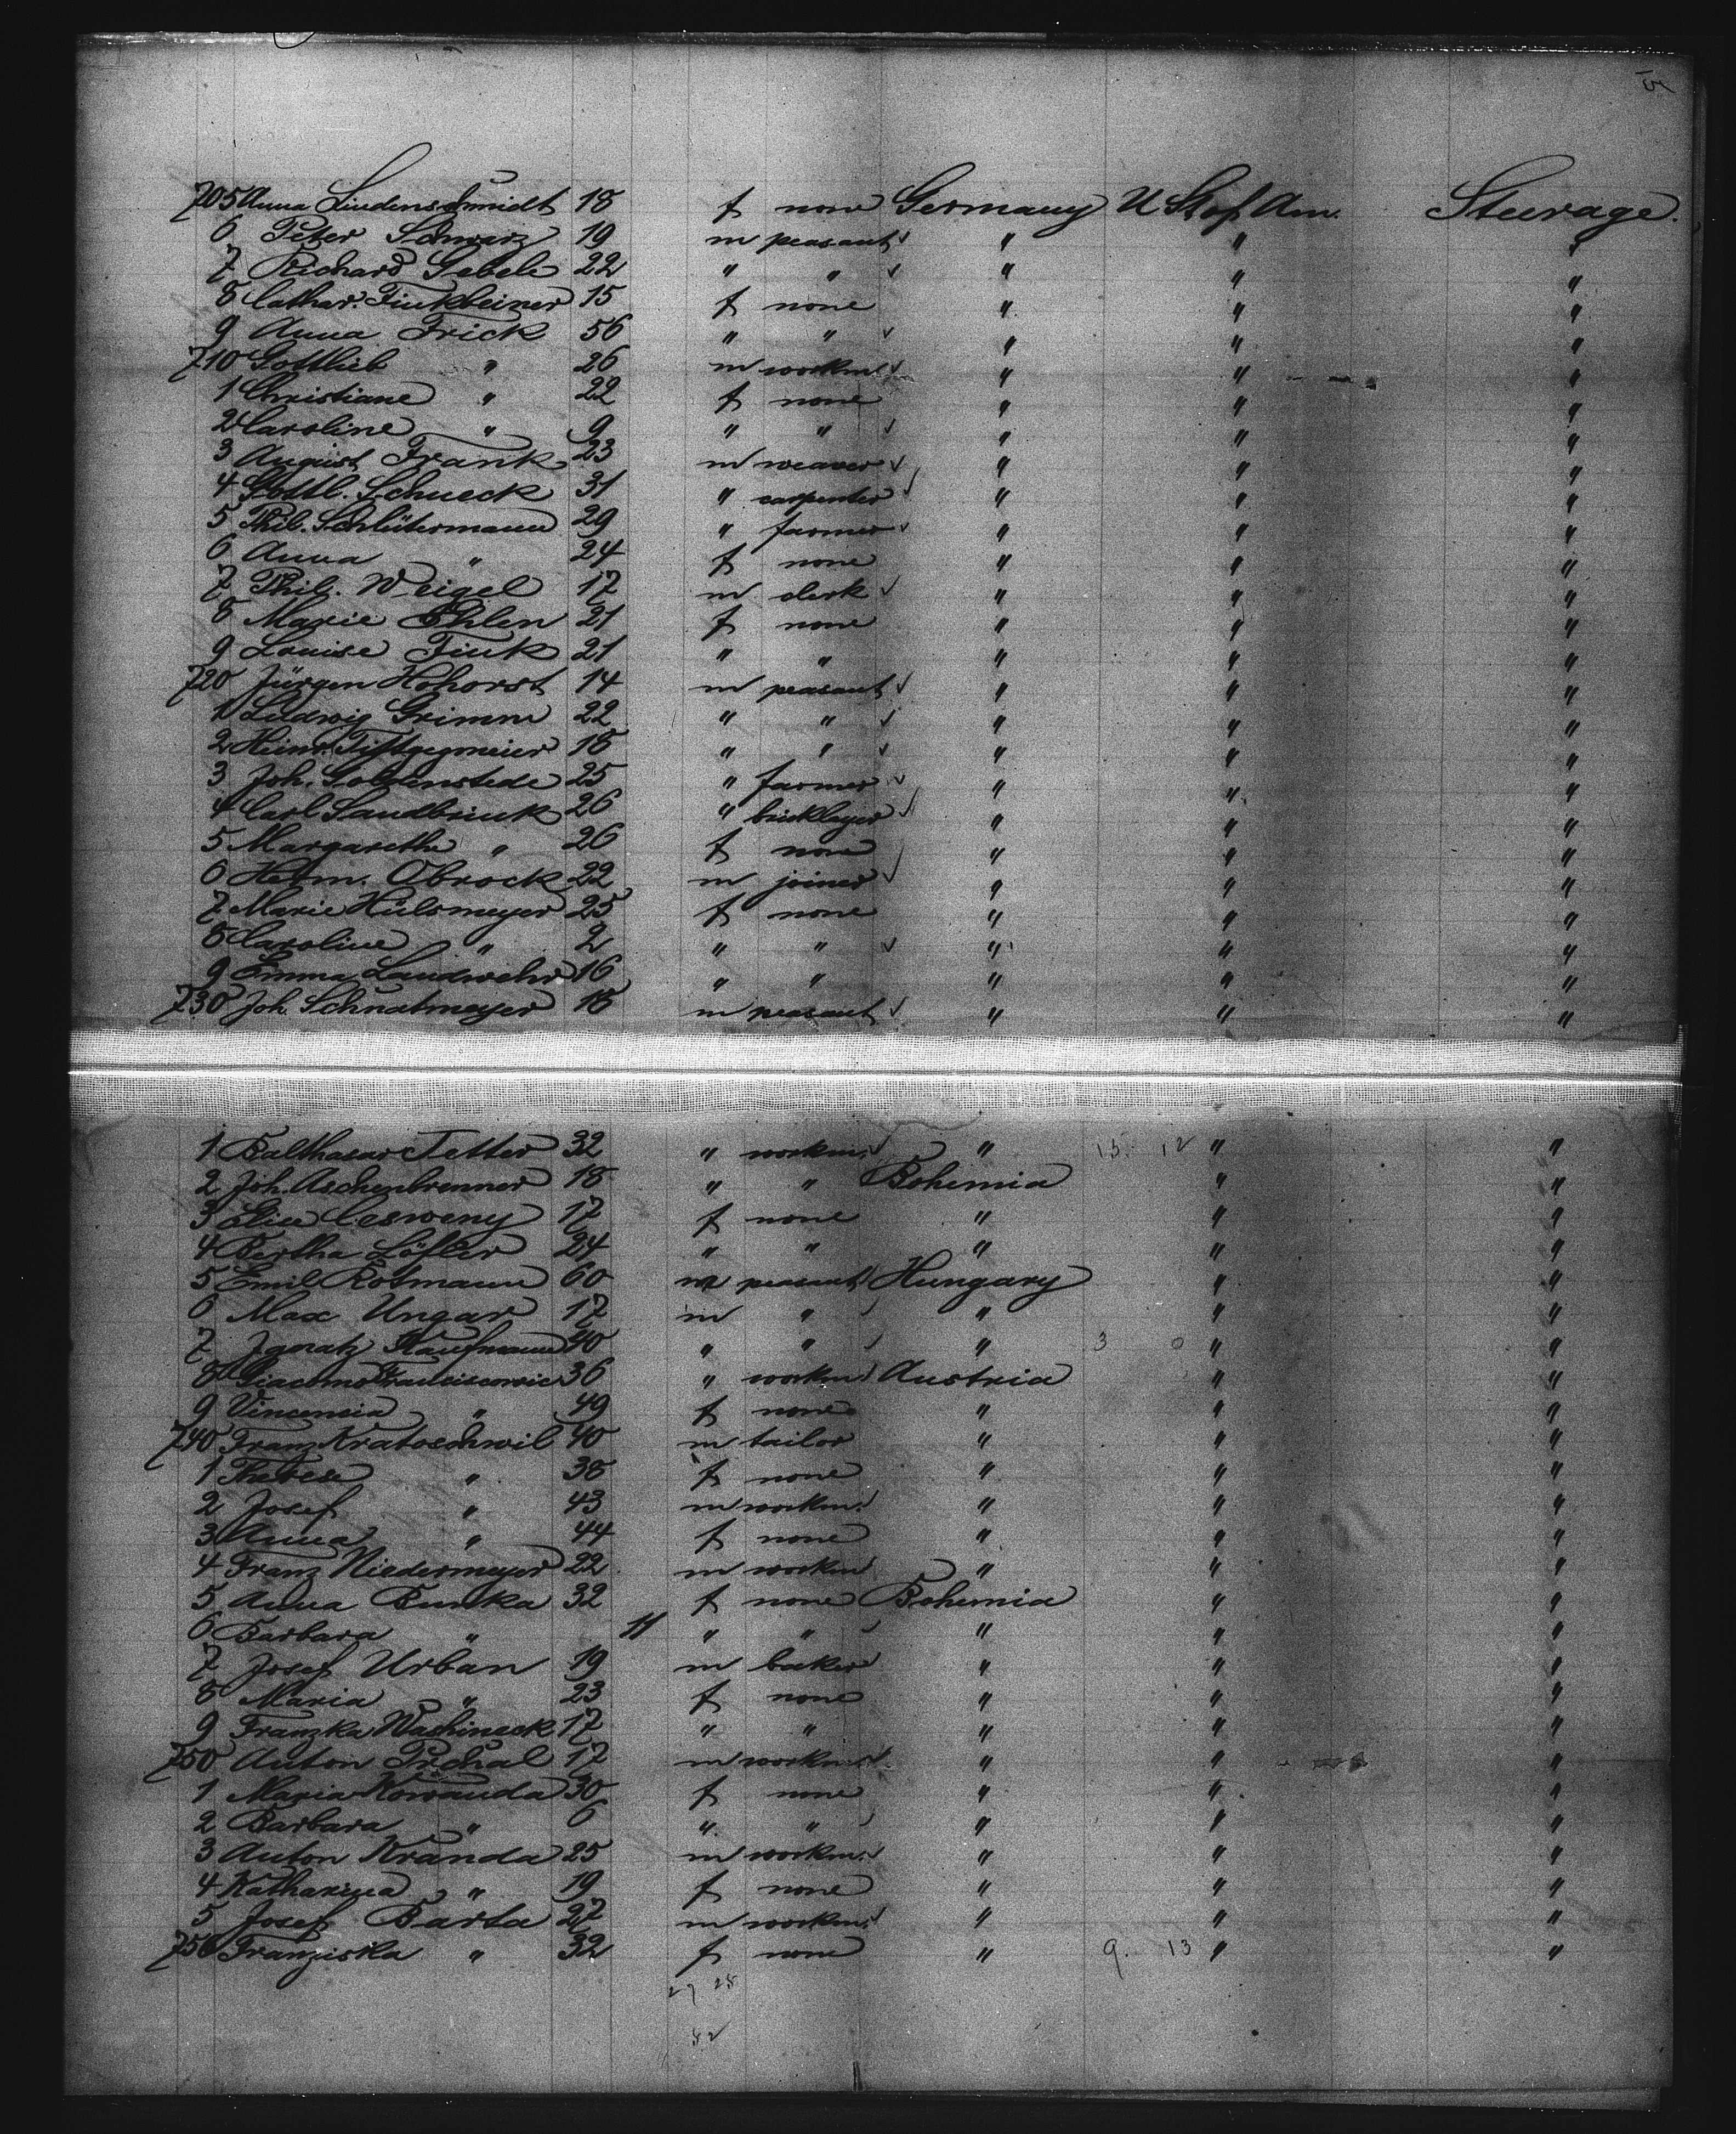 705 Anna Lindenschmidt 18 f none Germany U St of Am. Steerage.
6 Peter Schwarz 19 m peasant " " "
7 Richard Gebele 22 " " " " "
8 Cathar. Finkbeiner 15 f none " " "
9 Anna Frick 56 " " " " "
710 Gottlieb " 26 m workm. " " "
1 Christiane " 22 f none " " "
2 Caroline " 9 " " " " "
3 August Frank 23 m weaver " " "
4 Gottl. Schneck 31 " carpenter " " "
5 Phil. Schlütermann 29 " farmer " " "
6 Anna " 24 f none " " "
7 Phil. Weigel 17 m clerk " " "
8 Marie Ehlen 21 f none " " "
9 Louise Fink 21 " " " " "
720 Jürgen Hohorst 14 m peasant " " "
1 Ludwig Grimm 22 " " " " "
2 Heinr. 18 " " " " "
3 Joh. 25 " farmer " " "
4 Carl Sandbrink 26 " bricklayer " " "
5 Margarethe " 26 f none " " "
6 Herm. Obrock 22 m joiner " " "
7 Marie Hülsmeyer 25 f none " " "
8 Caroline " 2 " " " " "
9 Emma Landwehr 16 " " " " "
730 Joh. Schnatmeyer 18 m peasant " " "
1 Balthasar Tetter 32 " workm. " 15. 12 " "
2 Joh. Aschenbrenner 18 " " Bohemia " "
3 Elise Cesweny 17 f none " " "
4 Bertha Löfler 24 " " " " "
5 Emil Rotmann 60 m peasant Hungary " "
6 Max Ungar 17 m " " " "
7 Ignatz Kaufmann 40 " " " 3 0 " "
8 Giacomo Franciscovic 36 " workm. Austria " "
9 Vincencia " 49 f none " " "
740 Franz Kratoschwil 40 m tailor " " "
1 Therese " 38 f none " " "
2 Josef " 43 m workm. " " "
3 Anna " 44 f none " " "
4 Franz Niedermeyer 22 m workm. " " "
5 Anna Bunka 32 f none Bohemia " "
6 Barbara " 11 " " " " "
7 Josef Urban 19 m baker " " "
8 Maria " 23 f none " " "
9 Franzka Waschineck 17 " " " " "
750 Anton Prchal 17 m workm. " " "
1 Maria Kowanda 30 f none " " "
2 Barbara " 6 " " " " "
3 Anton Kranda 25 m workm. " " "
4 Katharina " 19 f none " " "
5 Josef Barta 27 m workm. " " "
756 Franziska " 32 f none " 9. 13 " "
27 25
52